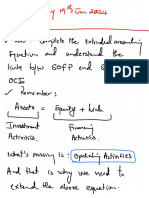 y 19th Jan 2024
Complete the Extended accounting
Equation and understand the
link b/w SOFP and S
OCI
✓ Remember:
Assets = Equity + Liab
Investment Financing
Activities. Activities.
What's missing is: Operating Activities
And that is why we need to
extend the above equation: